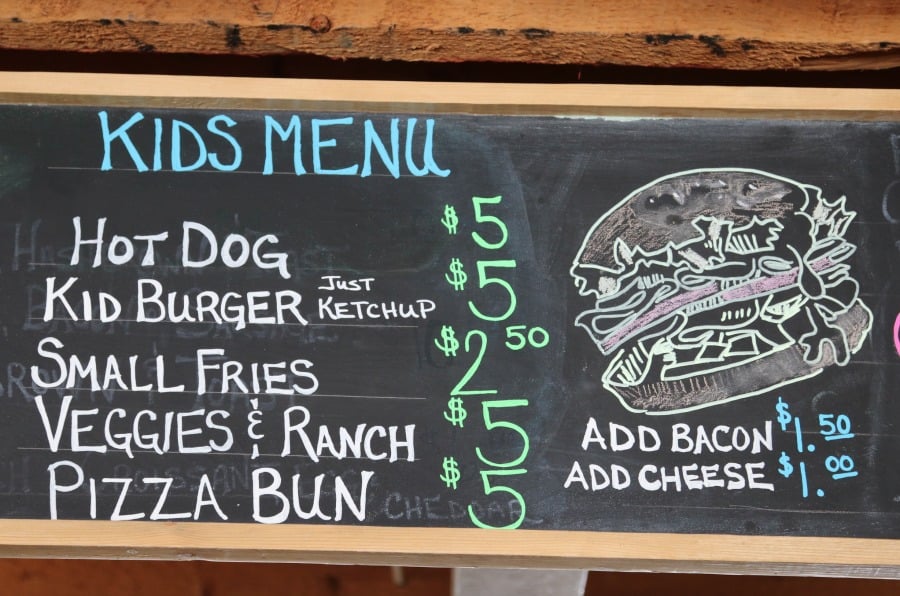 KIDS MENU
HOT DOG $5
KID BURGER JUST KETCHUP $5
SMALL FRIES $2.50
VEGGIES & RANCH $5
PIZZA BUN $5
CHEDDAR
ADD BACON $1.50
ADD CHEESE $1.00